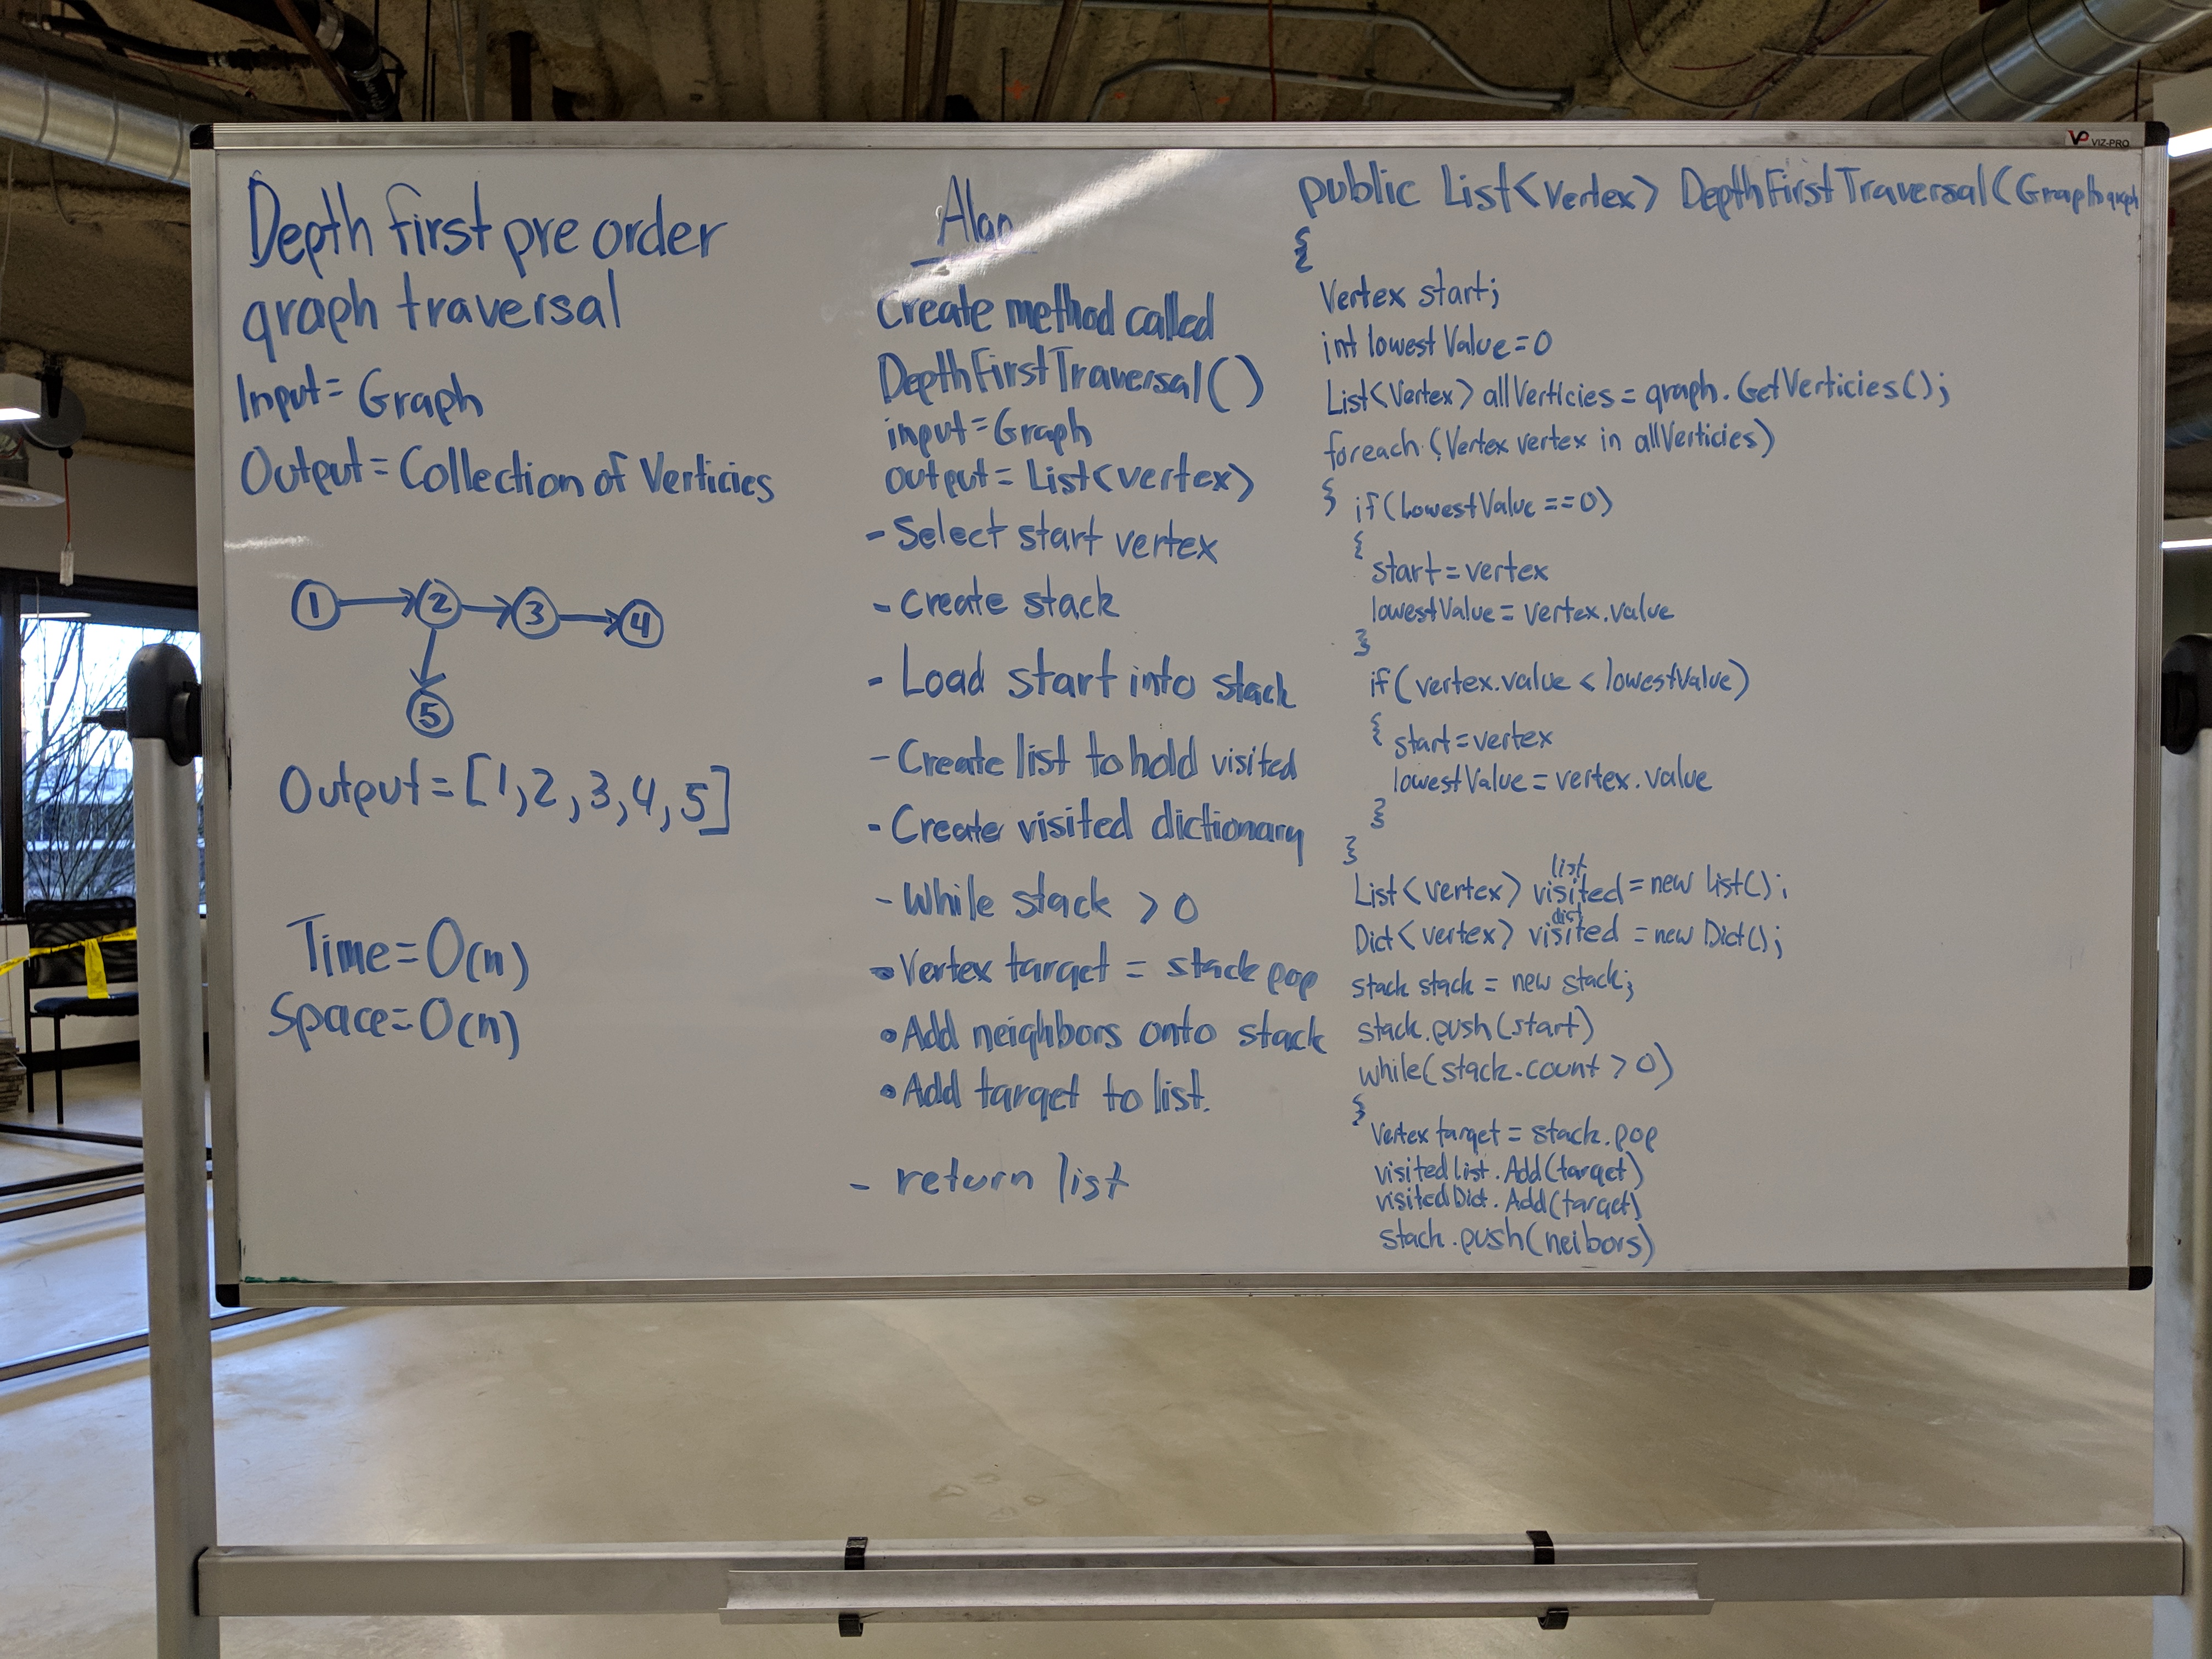 VP VIZ-PRO
Depth first pre order
graph traversal
Input= Graph
Output= Collection of Verticies
1
2
3
4
5
Output=[1,2,3,4,5]
Time=O(n)
Space=O(n)
Algo
Create method called
DepthFirstTraversal()
input=Graph
output= List<vertex>
- Select start vertex
- create stack
- Load start into stack
- Create list to hold visited
- Create visited dictionary
- While stack > 0
• Vertex target = stack pop
• Add neighbors onto stack
• Add target to list.
- return list
public List<Vertex> DepthFirstTraversal(Graph graph
{
Vertex start;
int lowestValue=0
List<Vertex> allVerticies = graph.GetVerticies();
foreach (Vertex vertex in allVerticies)
{ if(lowestValue ==0)
{
start=vertex
lowestValue= vertex.value
}
if(vertex.value < lowestValue)
{ start=vertex
lowestValue = vertex.value
}
}
list
List<vertex> visited = new list();
dist
Dict<vertex> visited = new Dict();
stack stack = new stack;
stack.push(start)
while(stack.count > 0)
{
Vertex target = stack.pop
visitedlist.Add(target)
visitedDict.Add(target)
stack.push(neibors)